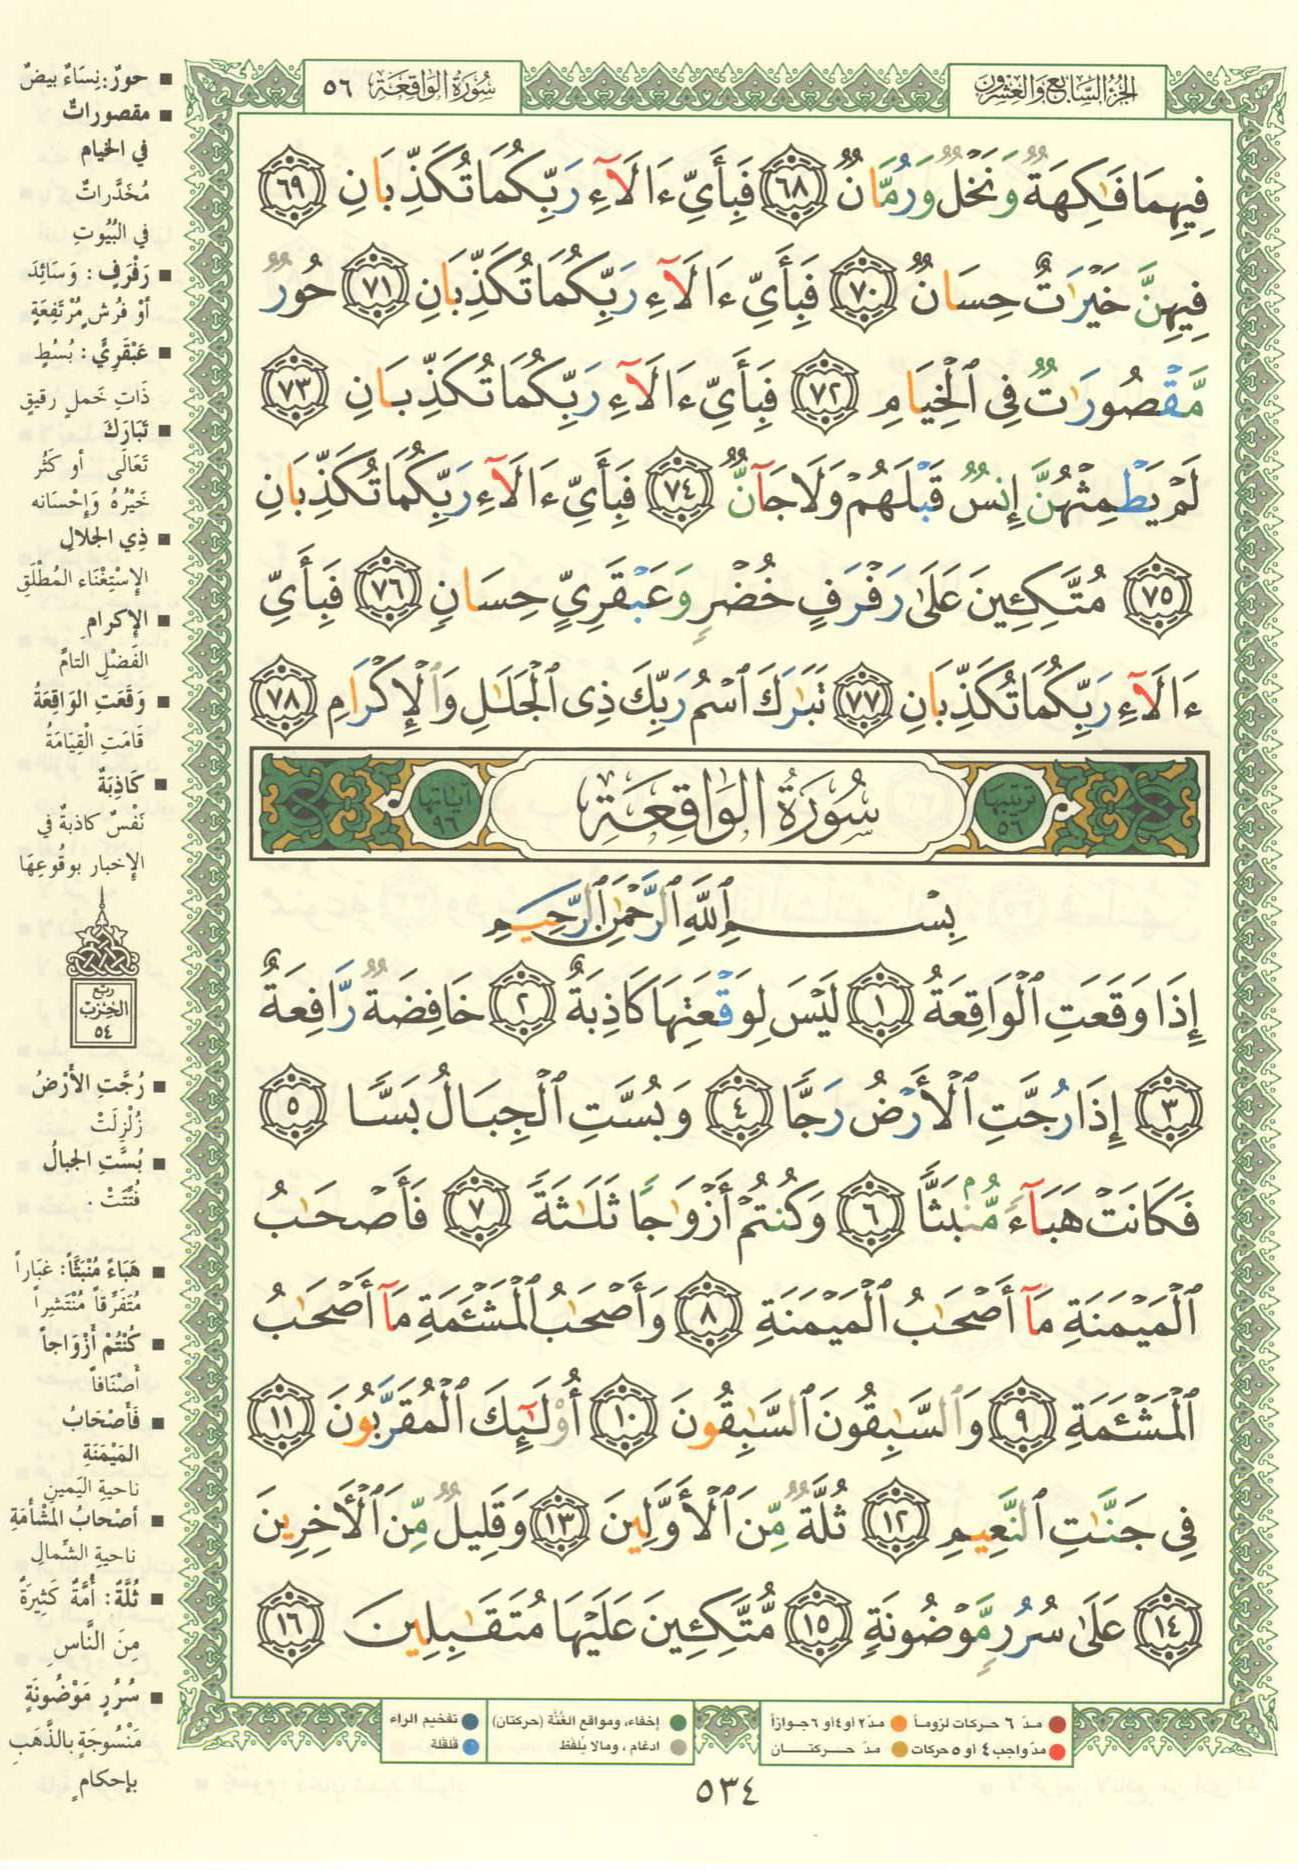 الجزء السابع والعشرون
سورة الواقعة ٥٦
فِيهِمَا فَـٰكِهَةٌ وَنَخْلٌ وَرُمَّانٌ ٦٨ فَبِأَىِّ ءَالَآءِ رَبِّكُمَا تُكَذِّبَانِ ٦٩
فِيهِنَّ خَيْرَٰتٌ حِسَانٌ ٧٠ فَبِأَىِّ ءَالَآءِ رَبِّكُمَا تُكَذِّبَانِ ٧١ حُورٌ
مَّقْصُورَٰتٌ فِى ٱلْخِيَامِ ٧٢ فَبِأَىِّ ءَالَآءِ رَبِّكُمَا تُكَذِّبَانِ ٧٣
لَمْ يَطْمِثْهُنَّ إِنسٌ قَبْلَهُمْ وَلَا جَآنٌّ ٧٤ فَبِأَىِّ ءَالَآءِ رَبِّكُمَا تُكَذِّبَانِ
٧٥ مُتَّكِـِٔينَ عَلَىٰ رَفْرَفٍ خُضْرٍ وَعَبْقَرِىٍّ حِسَانٍ ٧٦ فَبِأَىِّ
ءَالَآءِ رَبِّكُمَا تُكَذِّبَانِ ٧٧ تَبَـٰرَكَ ٱسْمُ رَبِّكَ ذِى ٱلْجَلَـٰلِ وَٱلْإِكْرَامِ ٧٨
ترتيبها ٥٦ سُورَةُ الوَاقِعَةِ آياتها ٩٦
بِسْمِ ٱللَّهِ ٱلرَّحْمَـٰنِ ٱلرَّحِيمِ
إِذَا وَقَعَتِ ٱلْوَاقِعَةُ ١ لَيْسَ لِوَقْعَتِهَا كَاذِبَةٌ ٢ خَافِضَةٌ رَّافِعَةٌ
٣ إِذَا رُجَّتِ ٱلْأَرْضُ رَجًّا ٤ وَبُسَّتِ ٱلْجِبَالُ بَسًّا ٥
فَكَانَتْ هَبَآءً مُّنۢبَثًّا ٦ وَكُنتُمْ أَزْوَٰجًا ثَلَـٰثَةً ٧ فَأَصْحَـٰبُ
ٱلْمَيْمَنَةِ مَآ أَصْحَـٰبُ ٱلْمَيْمَنَةِ ٨ وَأَصْحَـٰبُ ٱلْمَشْـَٔمَةِ مَآ أَصْحَـٰبُ
ٱلْمَشْـَٔمَةِ ٩ وَٱلسَّـٰبِقُونَ ٱلسَّـٰبِقُونَ ١٠ أُو۟لَـٰٓئِكَ ٱلْمُقَرَّبُونَ ١١
فِى جَنَّـٰتِ ٱلنَّعِيمِ ١٢ ثُلَّةٌ مِّنَ ٱلْأَوَّلِينَ ١٣ وَقَلِيلٌ مِّنَ ٱلْـَٔاخِرِينَ
١٤ عَلَىٰ سُرُرٍ مَّوْضُونَةٍ ١٥ مُّتَّكِـِٔينَ عَلَيْهَا مُتَقَـٰبِلِينَ ١٦
■ حورٌ: نِسَاءٌ بيضٌ
■ مقصوراتٌ
في الخيام
مُخَدَّراتٌ
في البُيُوتِ
■ رَفْرَفٍ: وَسَائِدَ
أوْ فُرُشٍ مُرْتَفِعَةٍ
■ عَبْقَرِيٍّ: بُسُطٍ
ذَاتِ خَملٍ رقيقٍ
■ تَبَارَكَ
تَعَالَى أو كَثُر
خَيْرُهُ وَإِحْسَانه
■ ذِي الجلالِ
الإِسْتِغْنَاء المُطْلَقِ
■ الإكرام
الفَضْلِ التامِّ
■ وَقَعَتِ الوَاقِعَةُ
قَامَتِ الْقِيَامَةُ
■ كَاذِبَةٌ
نَفْسٌ كاذبةٌ في
الإخبار بوقُوعِهَا
ربع
الحزب
٥٤
■ رُجَّتِ الأَرْضُ
زُلْزِلَتْ
■ بُسَّتِ الجبالُ
فُتِّتَتْ
■ هَبَاءً مُنْبَثّاً: غبَاراً
مُتَفَرِّقاً مُنْتَشِراً
■ كُنْتُمْ أَزْوَاجاً
أَصْنَافاً
■ فَأَصْحَابُ
المَيْمَنَةِ
ناحيةِ اليَمينِ
■ أصْحَابُ المَشْأَمَةِ
ناحيةِ الشِّمالِ
■ ثُلَّةٌ: أُمَّةٌ كَثِيرَةٌ
مِنَ النَّاسِ
■ سُرُرٍ مَوْضُونَةٍ
مَنْسُوجَةٍ بالذَّهَبِ
بإحكام
مدّ ٦ حركات لزوماً مدّ٢ أو٤أو ٦جوازاً
مدّ واجب٤ أو ٥ حركات مدّ حركتان
إخفاء، ومواقع الغُنَّة (حركتان)
ادغام ، ومالا يُلفظ
تفخيم الراء
قلقلة
٥٣٤